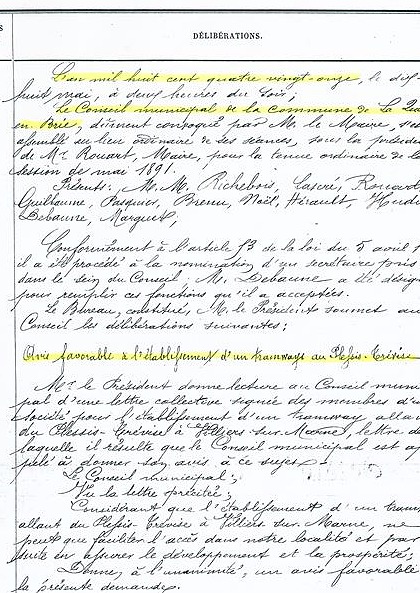 S
DÉLIBÉRATIONS.
L'an mil huit cent quatre vingt-onze, le dix-
huit mai, à deux heures du soir;
Le Conseil municipal de la commune de La Queue
en Brie, dûment convoqué par M. le Maire, s'est
assemblé au lieu ordinaire de ses séances, sous la présidence
de Mr. Rouart, Maire, pour la tenue ordinaire de la
session de mai 1891.
Présents: M. M. Richebois, Lasore, Rouart,
Guilbaume, Pasquier, Brenu, Noël, Hérault,
Debaune, Marquet;
Conformément à l'article 53 de la loi du 5 avril 1
il a été procédé à la nomination d'un secrétaire pris
dans le sein du Conseil: M. Debaune a été désigné
pour remplir ces fonctions qu'il a acceptées.
Le Bureau, constitué, M. le Président soumet au
Conseil les délibérations suivantes:
Avis favorable à l'établissement d'un tramways au Plessis-Trévise
Mr. le Président donne lecture au Conseil muni-
pal d'une lettre collective signée des membres d'u
société pour l'établissement d'un tramway allant
du Plessis-Trévise à Villiers-sur-Marne, lettre de
laquelle il résulte que le Conseil municipal est ap
pelé à donner son avis à ce sujet.
Le Conseil municipal;
Vu la lettre précitée;
Considérant que l'établissement d'un tram
allant du Plessis-Trévise à Villiers sur Marne, ne
peut que faciliter l'accès dans notre localité et par
suite en assurer le développement et la prospérité;
Donne, à l'unanimité, un avis favorable
la présente demande.